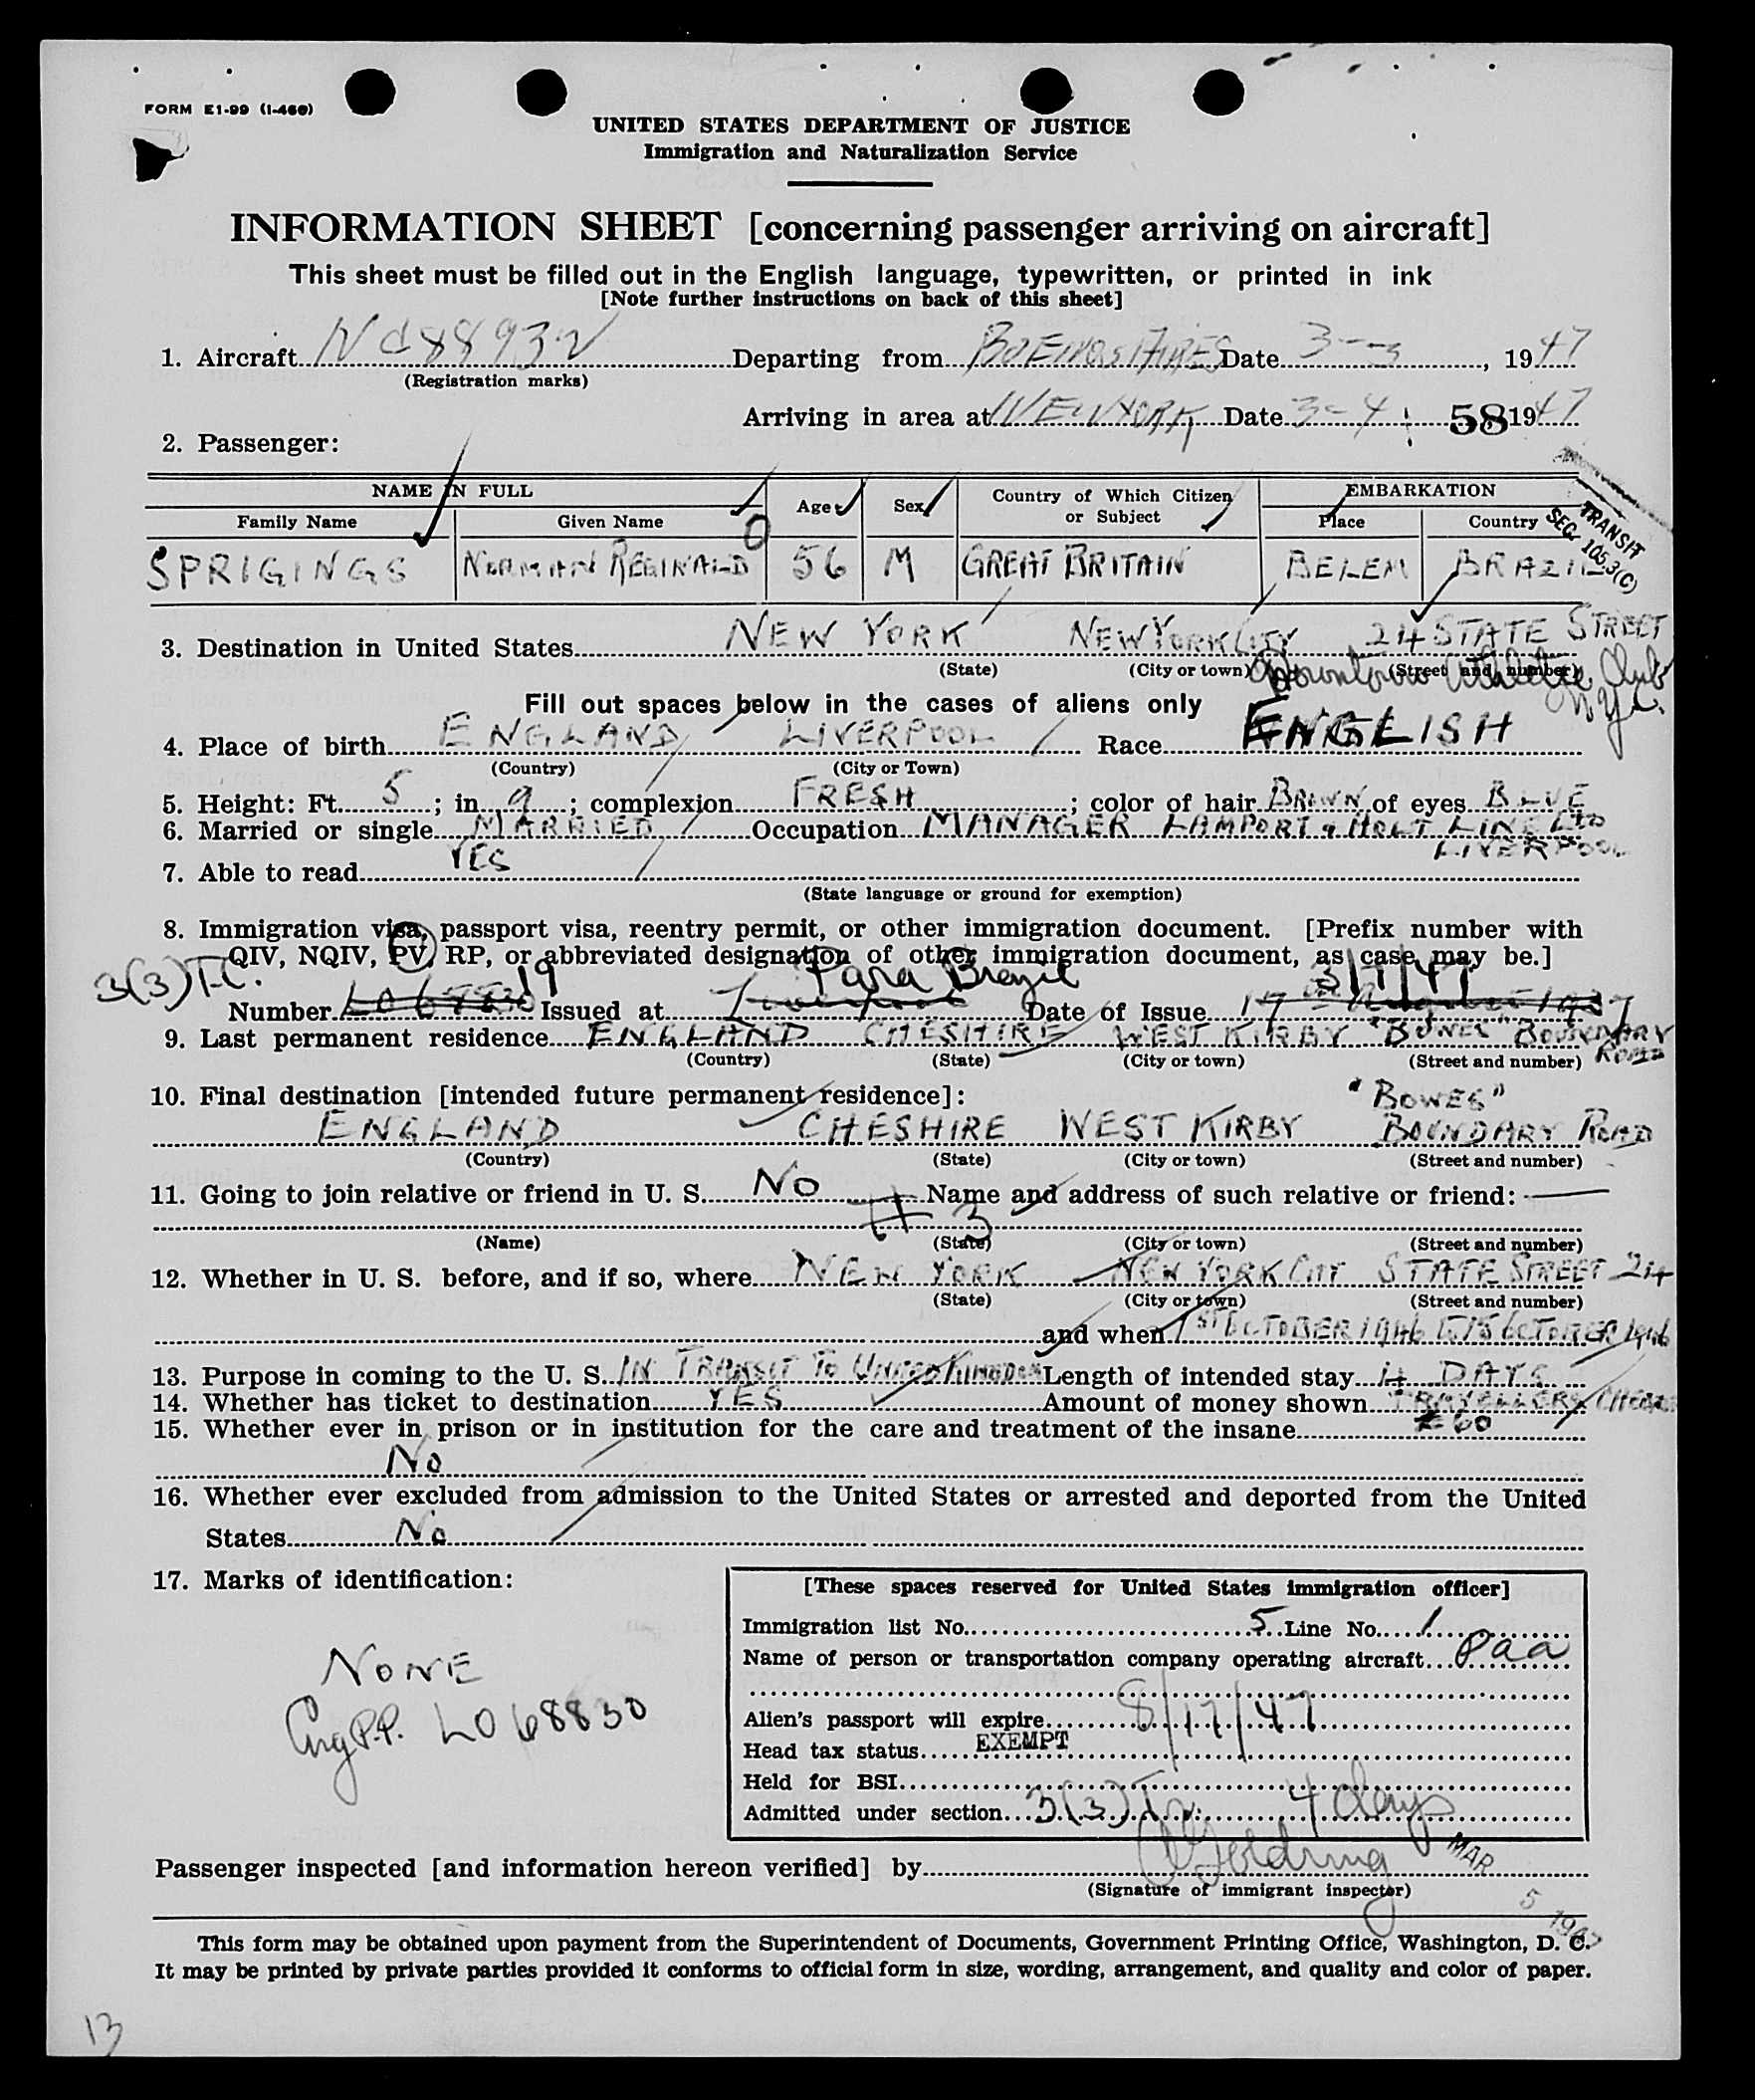 FORM E1-99 (I-466)
UNITED STATES DEPARTMENT OF JUSTICE
Immigration and Naturalization Service
INFORMATION SHEET [concerning passenger arriving on aircraft]
This sheet must be filled out in the English language, typewritten, or printed in ink
[Note further instructions on back of this sheet]
1. Aircraft NC88932 Departing from BUENOS AIRES Date 3-3, 1947
(Registration marks)
Arriving in area at NEW YORK Date 3-4 58 1947
2. Passenger:
NAME IN FULL Age Sex Country of Which Citizen or Subject EMBARKATION
Family Name Given Name Place Country
TRANSIT SEC. 105.3(C)
SPRIGINGS NORMAN REGINALD 56 M GREAT BRITAIN BELEM BRAZIL
0
3. Destination in United States NEW YORK NEW YORK CITY 24 STATE STREET
(State) (City or town) (Street and number)
Downtown Athletic Club NYC.
Fill out spaces below in the cases of aliens only
4. Place of birth ENGLAND LIVERPOOL Race ENGLISH
(Country) (City or Town)
5. Height: Ft. 5; in. 9; complexion FRESH; color of hair BROWN of eyes BLUE
6. Married or single MARRIED Occupation MANAGER LAMPORT & HOLT LINE LTD
LIVERPOOL
7. Able to read YES
(State language or ground for exemption)
8. Immigration visa, passport visa, reentry permit, or other immigration document. [Prefix number with
QIV, NQIV, PV, RP, or abbreviated designation of other immigration document, as case may be.]
3(3) T.C. 19 Para Brazil 3/1/47
Number Issued at Liverpool Date of Issue 17 1937
9. Last permanent residence ENGLAND CHESHIRE WEST KIRBY "BOWES" BOUNDARY ROAD
(Country) (State) (City or town) (Street and number)
10. Final destination [intended future permanent residence]: "BOWES"
ENGLAND CHESHIRE WEST KIRBY BOUNDARY ROAD
(Country) (State) (City or town) (Street and number)
11. Going to join relative or friend in U. S. NO Name and address of such relative or friend: —
# 3
(Name) (State) (City or town) (Street and number)
12. Whether in U. S. before, and if so, where NEW YORK NEW YORK CITY STATE STREET 24
(State) (City or town) (Street and number)
and when 1ST OCTOBER 1946 TO 15 OCTOBER 1946
13. Purpose in coming to the U. S. IN TRANSIT TO UNITED KINGDOM Length of intended stay 4 DAYS
14. Whether has ticket to destination YES Amount of money shown TRAVELLERS CHEQUES
£60
15. Whether ever in prison or in institution for the care and treatment of the insane
NO
16. Whether ever excluded from admission to the United States or arrested and deported from the United
States No
17. Marks of identification:
NONE
Eng P.P. LO68830
[These spaces reserved for United States immigration officer]
Immigration list No. 5 Line No. 1
Name of person or transportation company operating aircraft Paa
Alien's passport will expire 8/17/47
Head tax status EXEMPT
Held for BSI
Admitted under section 3(3) Tr. 4 days
Passenger inspected [and information hereon verified] by Golding
(Signature of immigrant inspector)
MAR 5 1947
This form may be obtained upon payment from the Superintendent of Documents, Government Printing Office, Washington, D. C.
It may be printed by private parties provided it conforms to official form in size, wording, arrangement, and quality and color of paper.
13